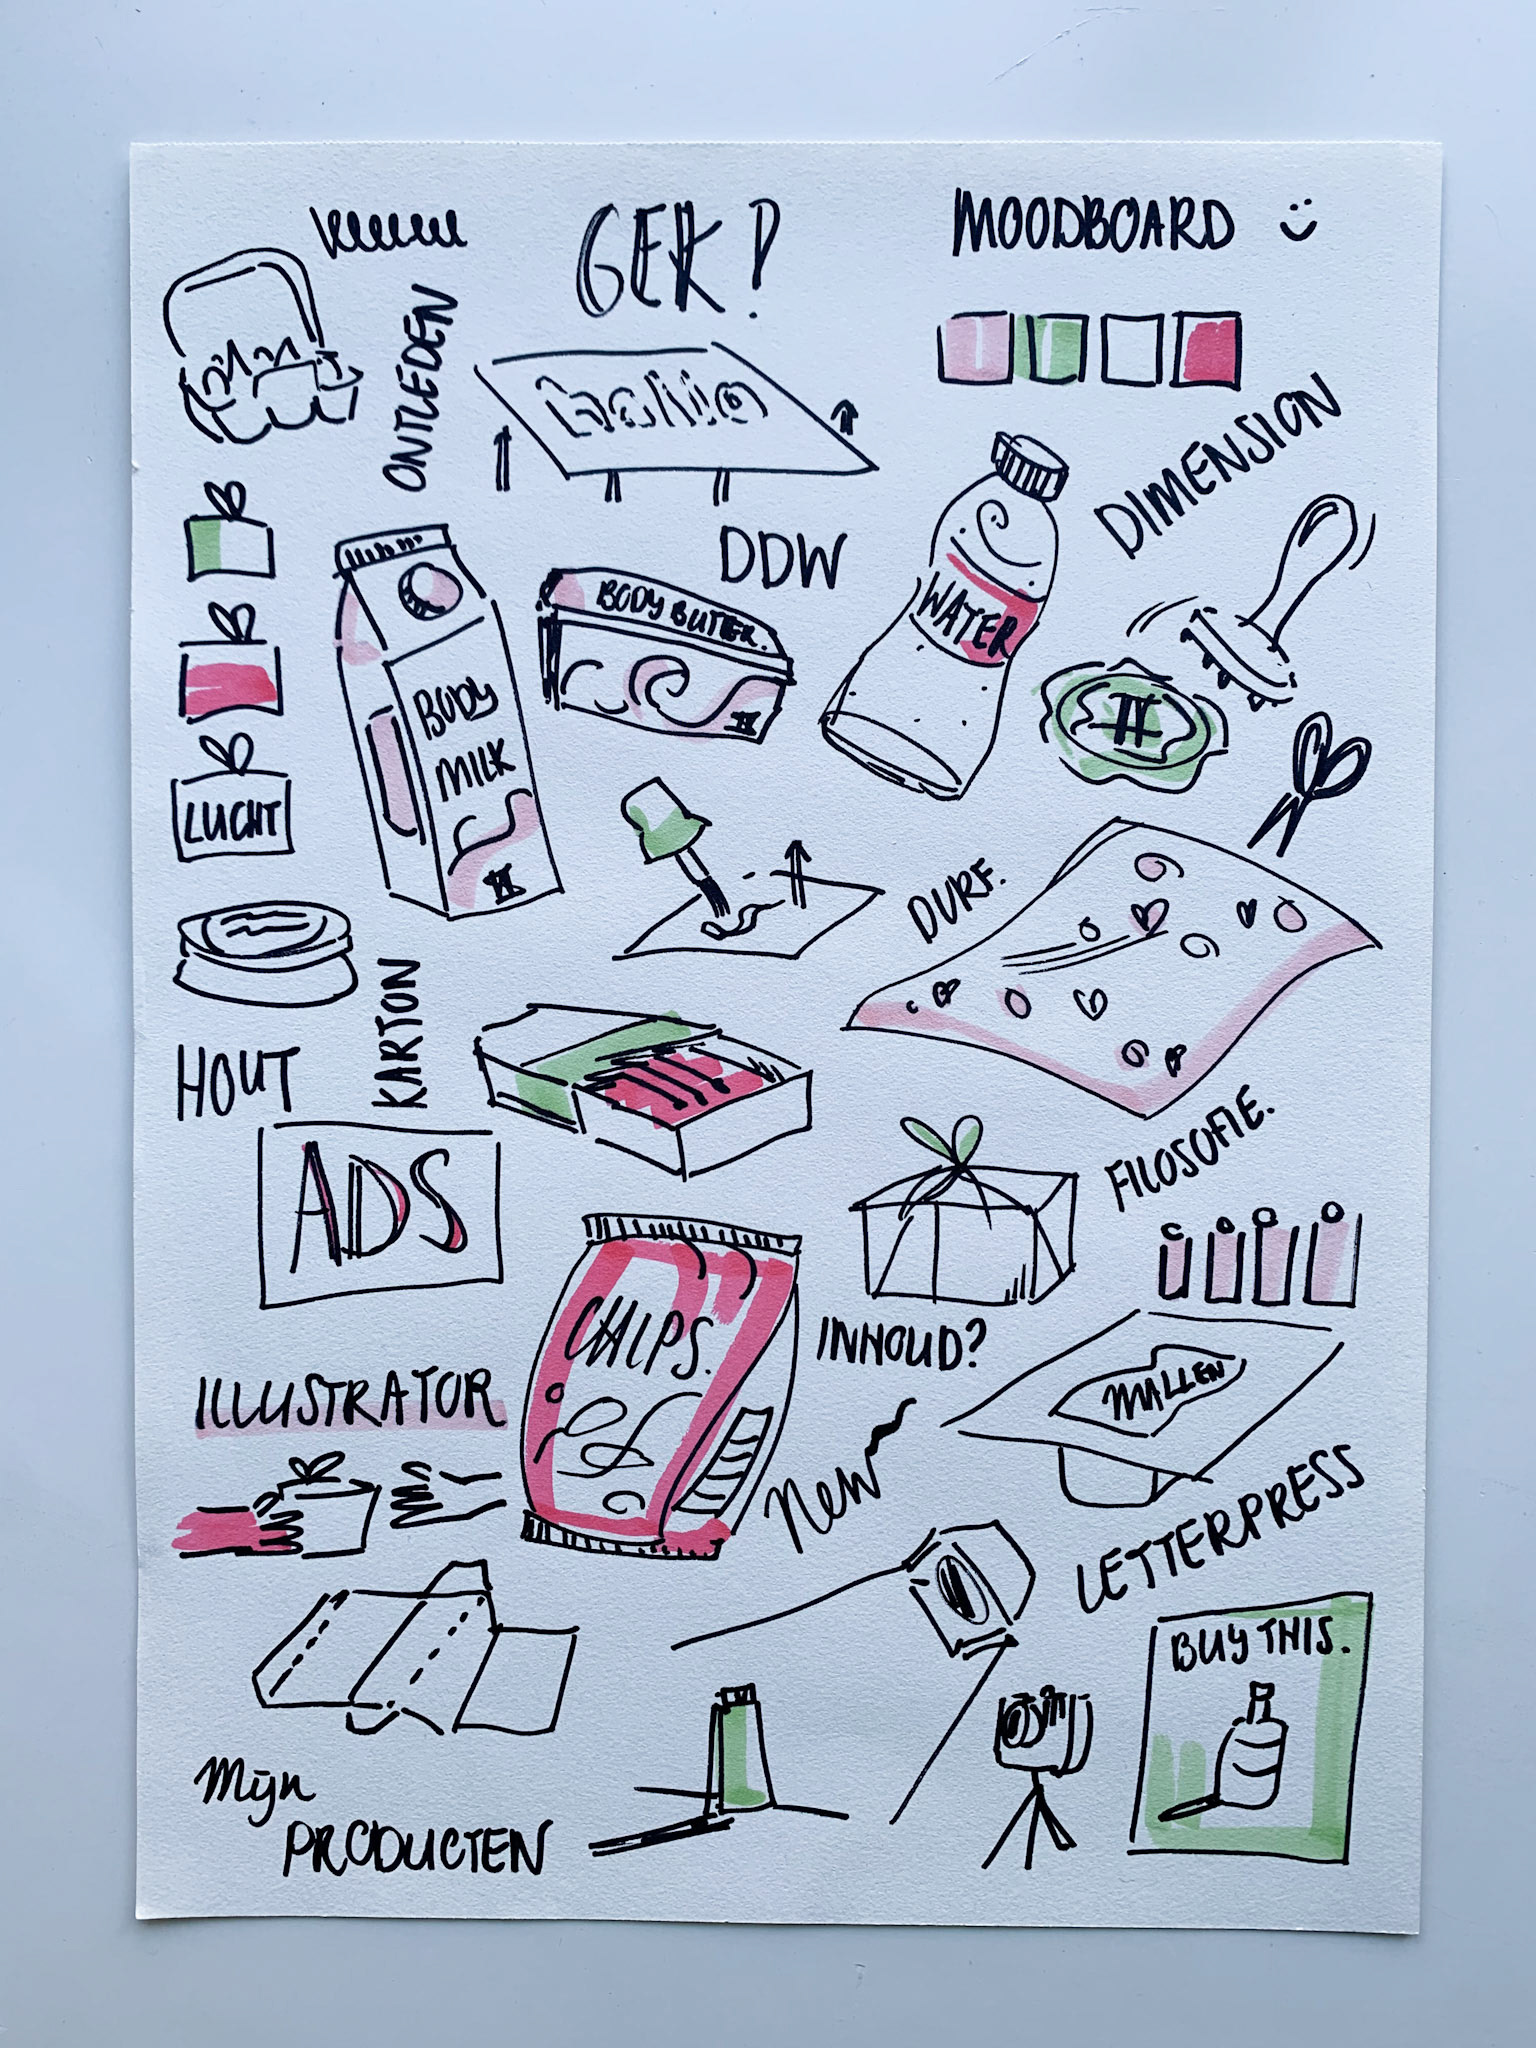 GEK!
MOODBOARD
ONTLEDEN
hallo
DIMENSION
DDW
BODY BUTTER.
WATER
BODY
MILK
LUCHT
DURF.
KARTON
HOUT
ADS
FILOSOFIE.
CHIPS.
INHOUD?
MALLEN
ILLUSTRATOR
New
LETTERPRESS
BUY THIS.
Mijn
PRODUCTEN